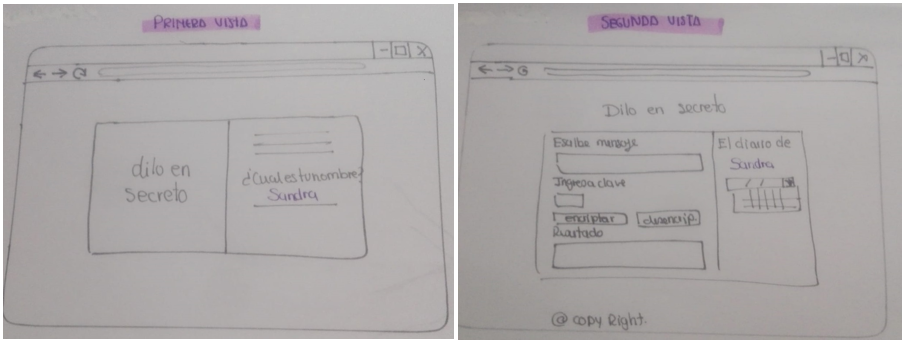 PRIMERA VISTA
dilo en
secreto
¿Cual es tu nombre?
Sandra
SEGUNDA VISTA
Dilo en secreto
Escriba mensaje
Ingresa clave
encriptar
Resultado
El diario de
Sandra
@ copy Right.